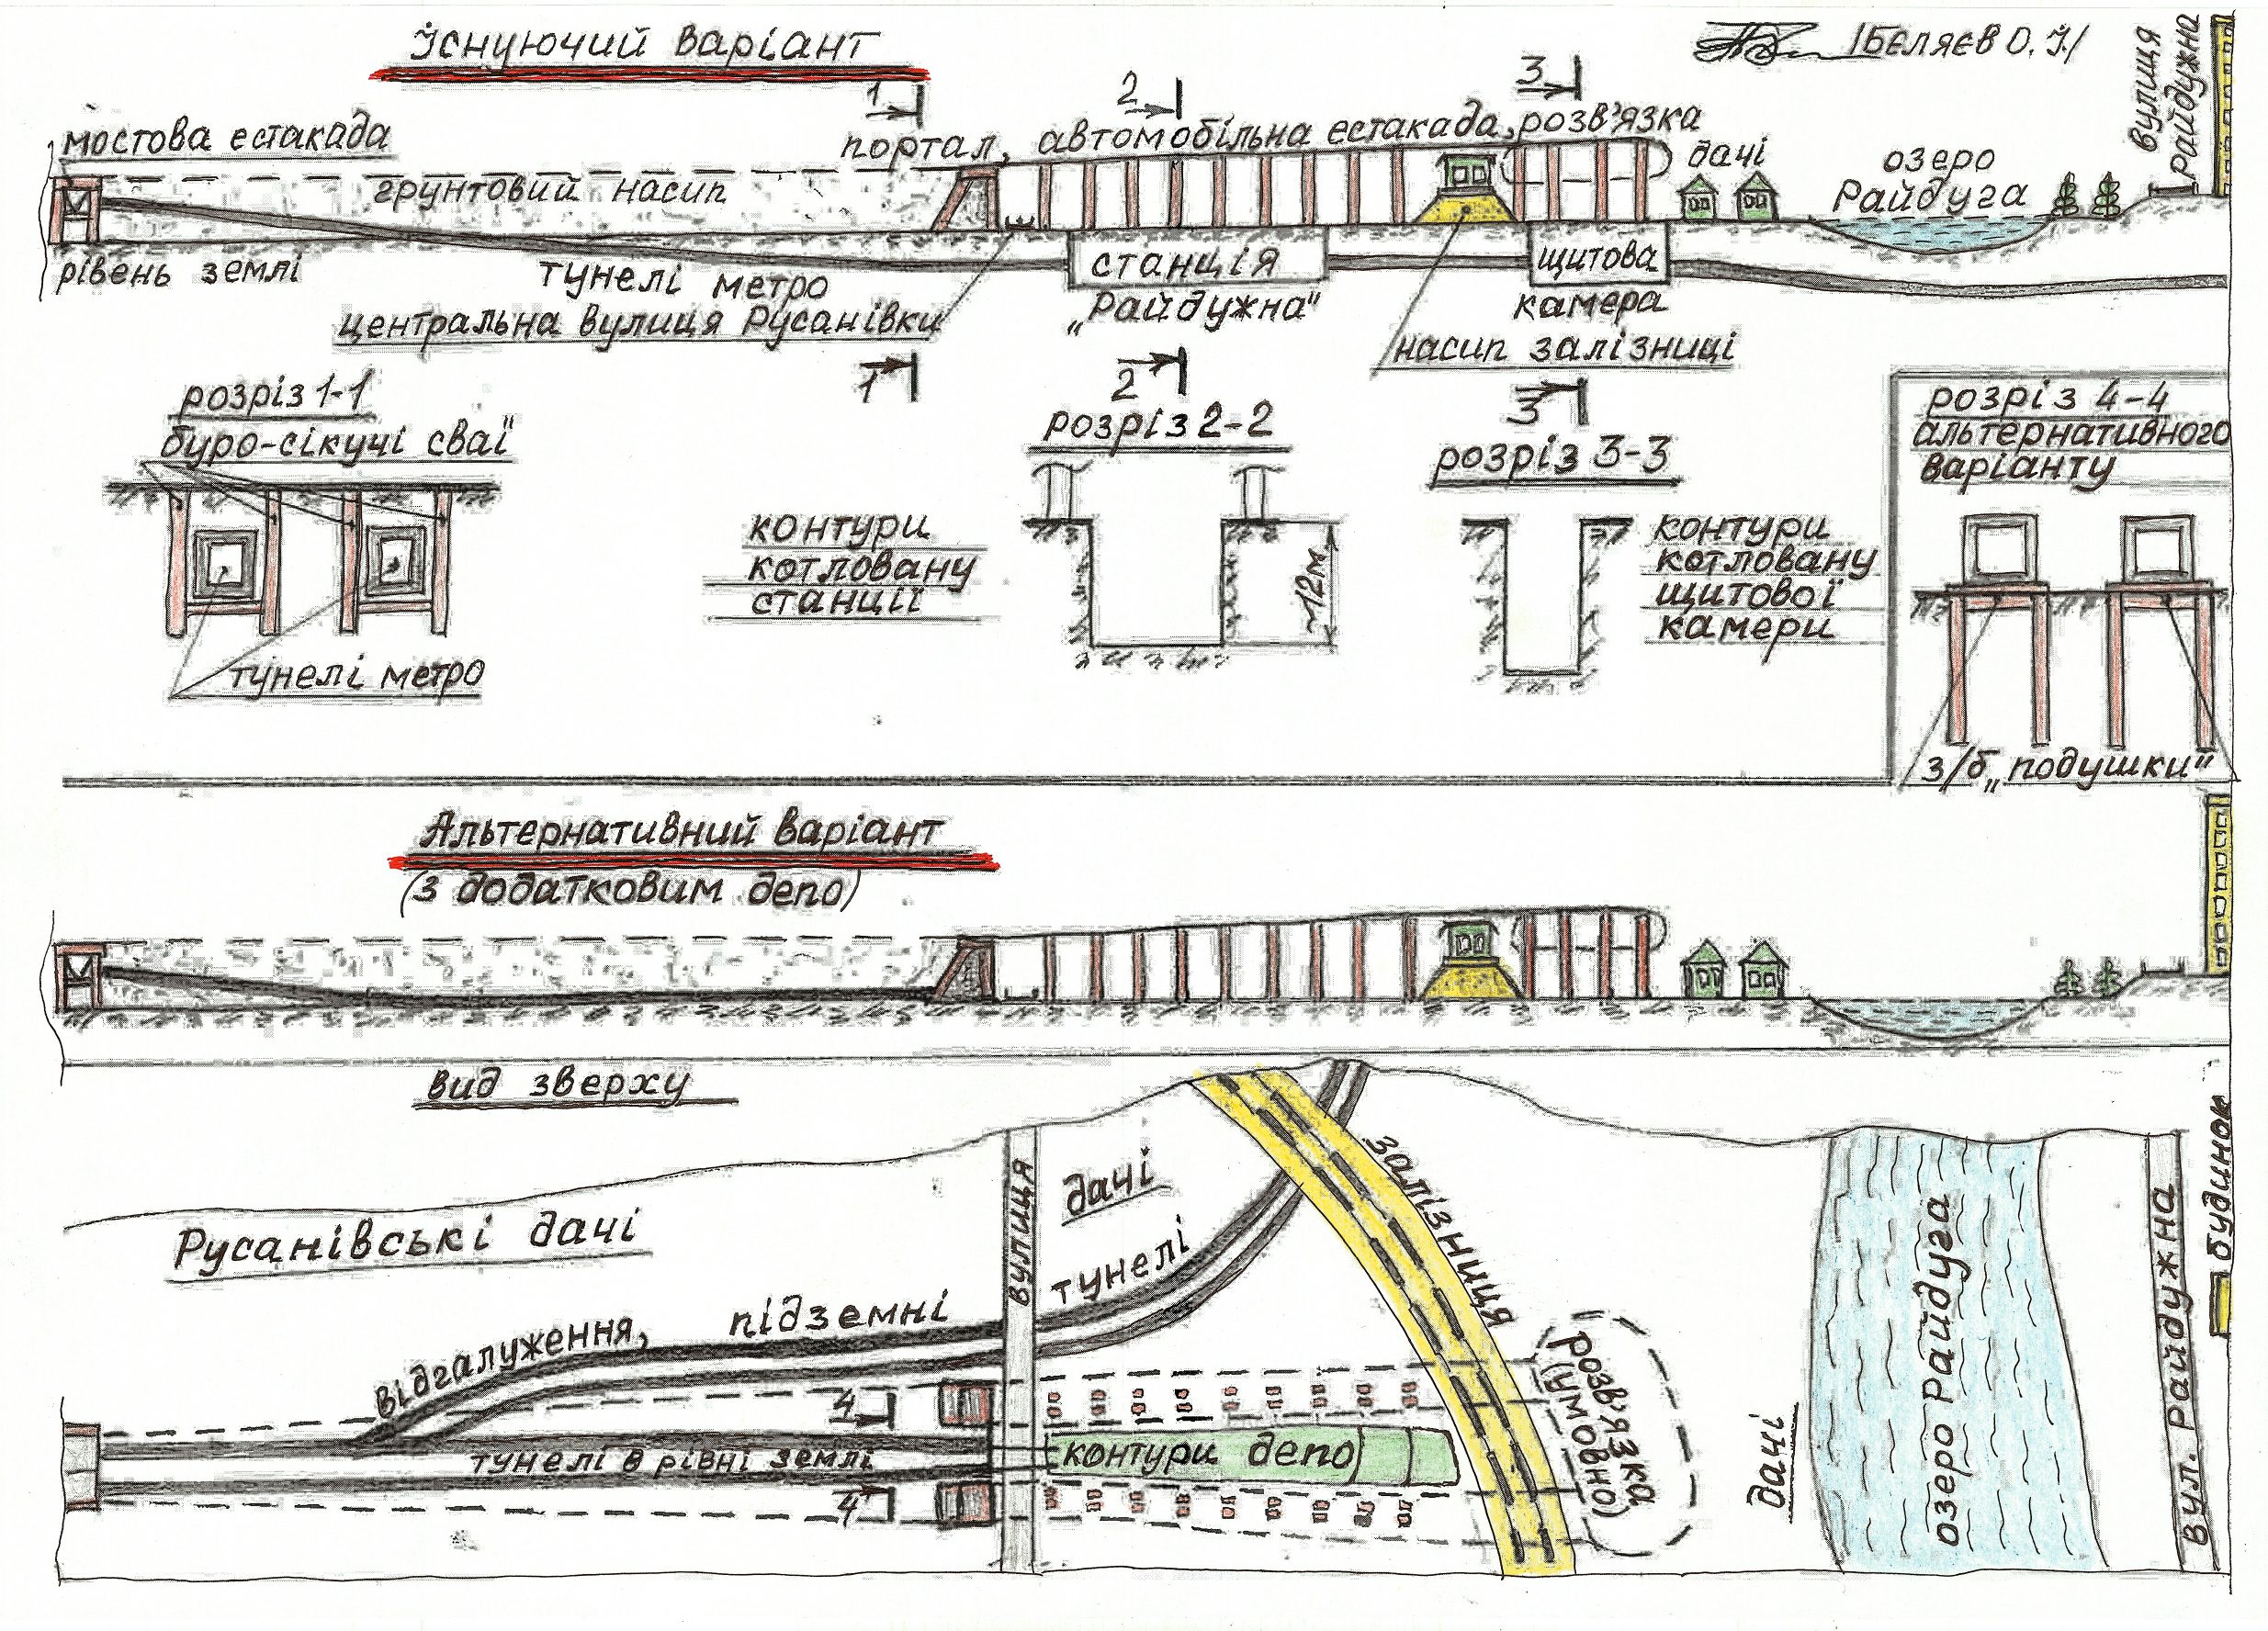 Існуючий варіант
/Бєляєв О.І./
вулиця
Райдужна
1
2
3
мостова естакада
портал, автомобільна естакада, розв'язка
дачі
озеро
Райдуга
грунтовий насип
рівень землі
тунелі метро
центральна вулиця Русанівки
станція
„Райдужна"
щитова
камера
насип залізниці
1
2
3
розріз 1-1
буро-сікучі сваї
тунелі метро
розріз 2-2
контури
котловану
станції
~12м
розріз 3-3
контури
котловану
щитової
камери
розріз 4-4
альтернативного
варіанту
з/б „подушки"
Альтернативний варіант
(з додатковим депо)
вид зверху
Русанівські дачі
вулиця
дачі
відгалуження, підземні тунелі
залізниця
4
тунелі в рівні землі
4
контури депо
розв'язка
(умовно)
дачі
озеро Райдуга
вул. Райдужна
будинок